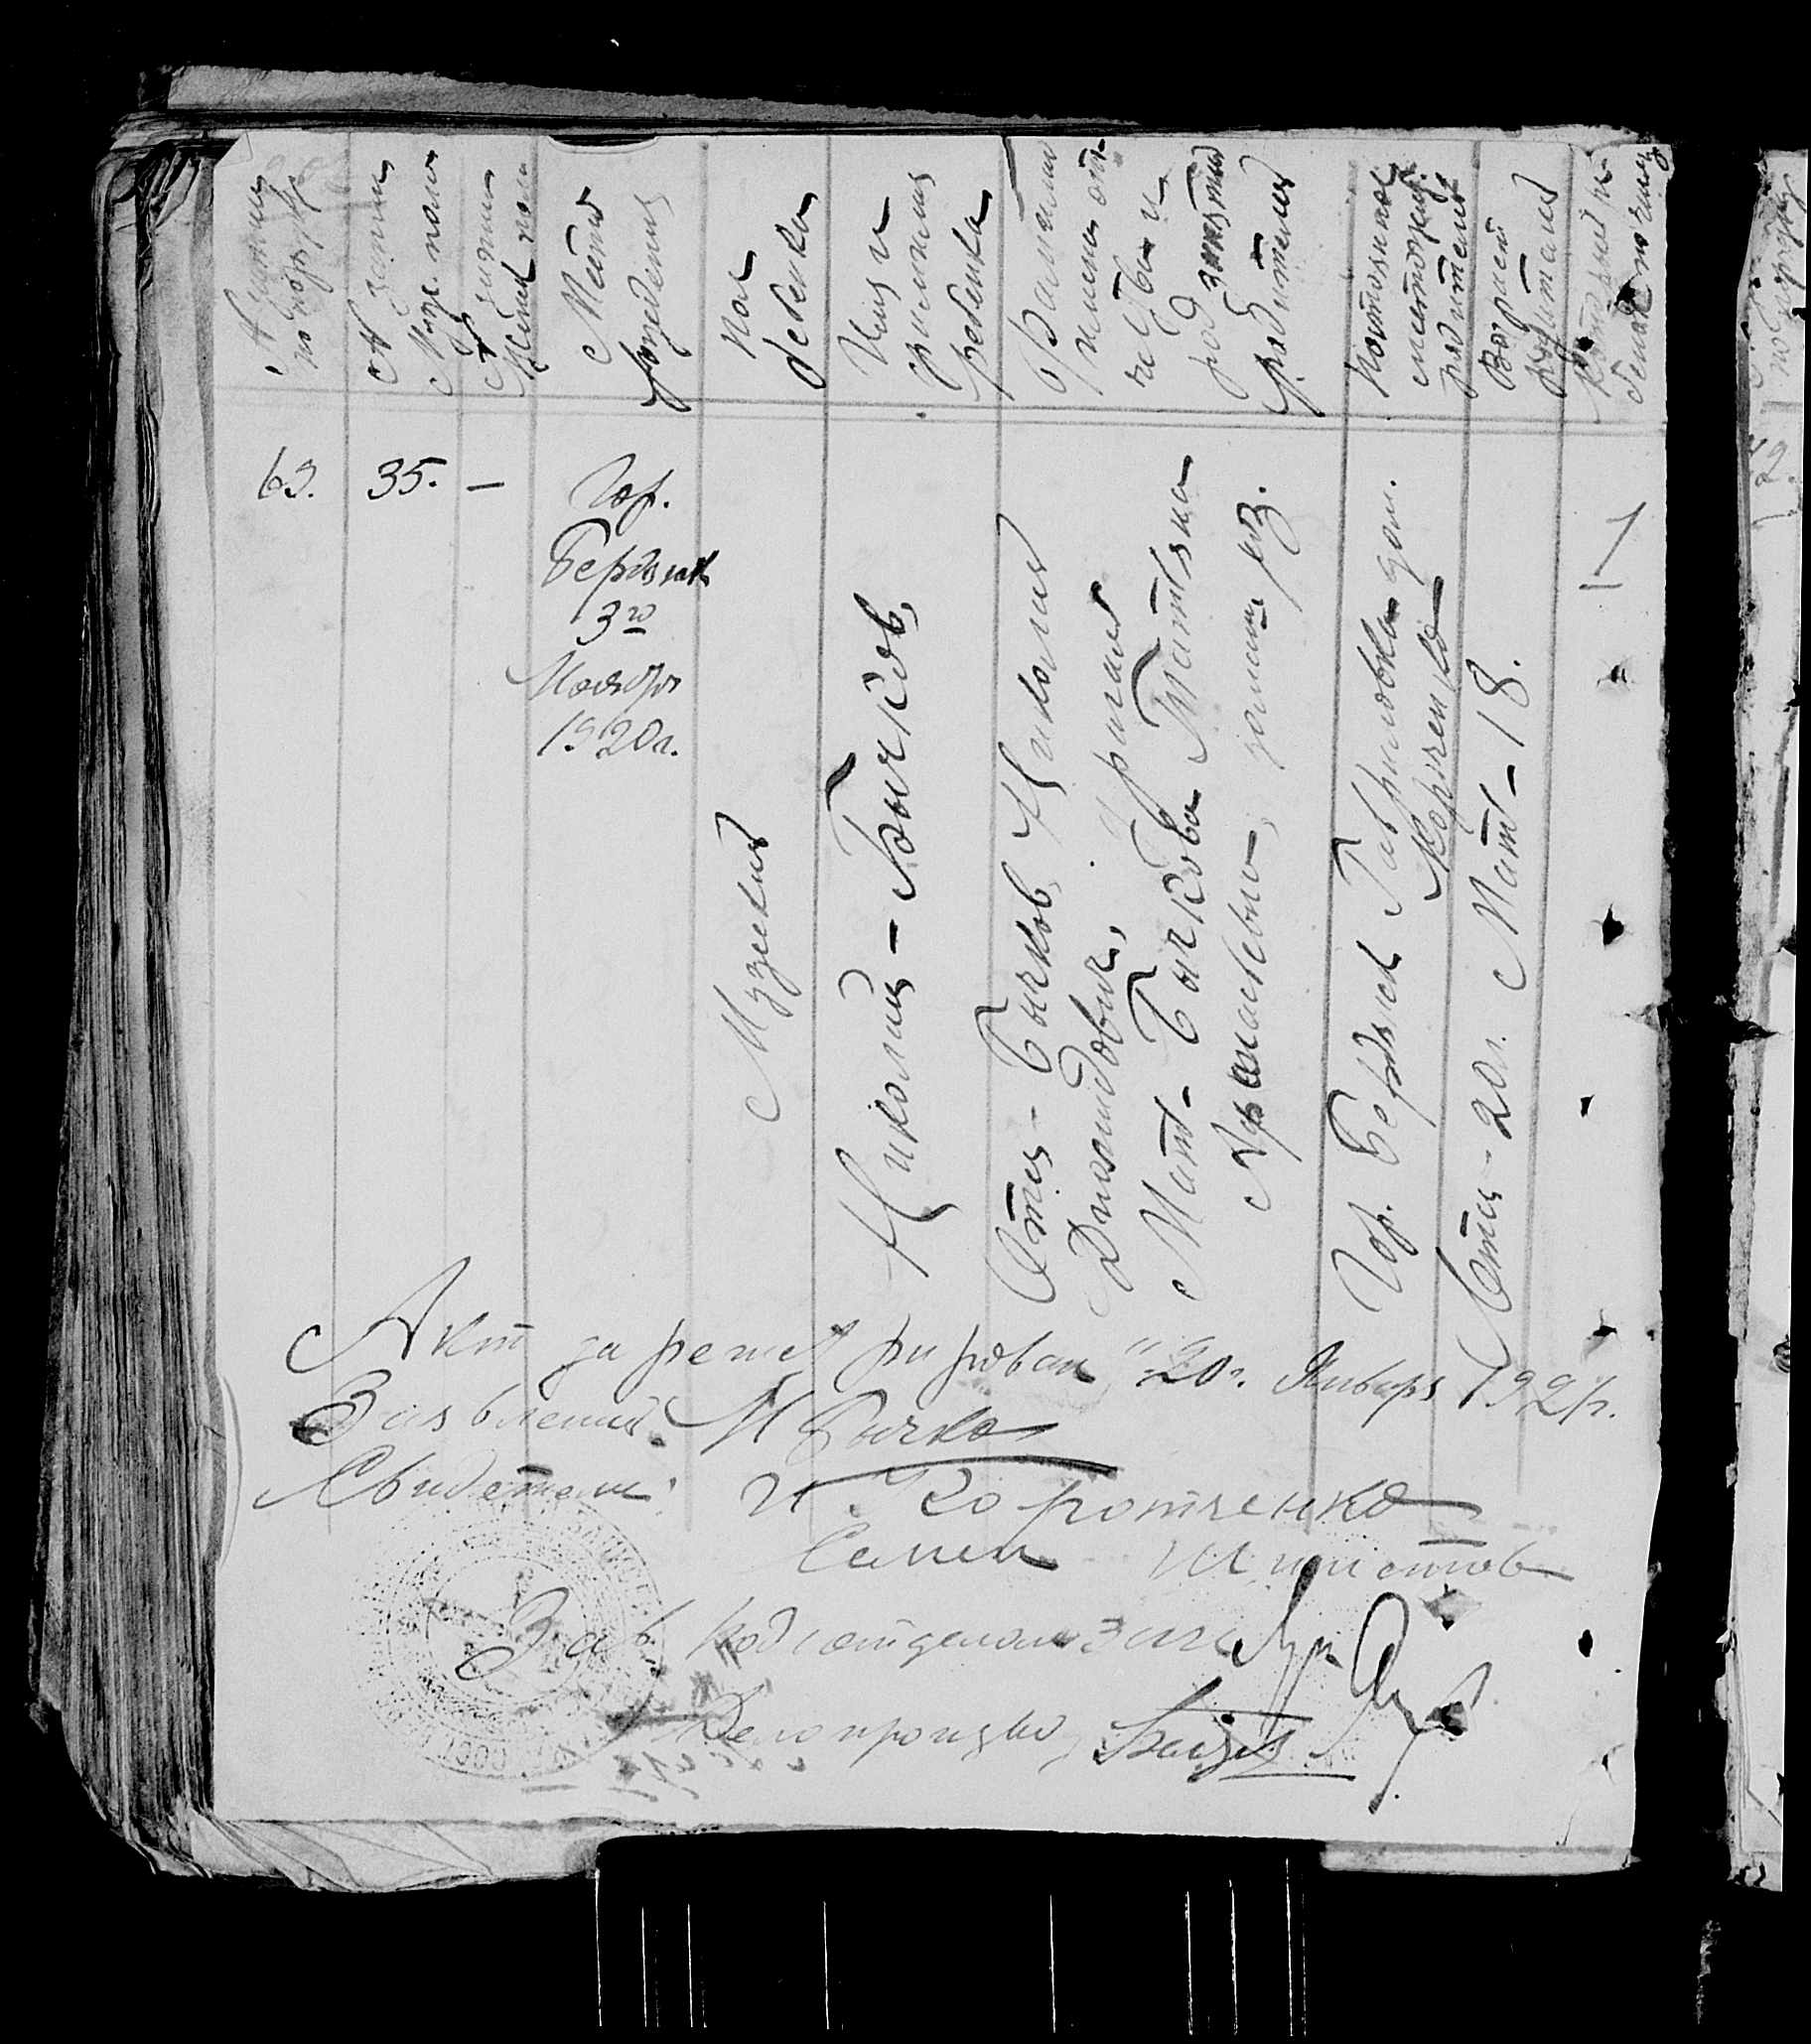 № записи
по поряд.
№ записи
Муж. пола
№ записи
Женск. пола
Место
рождения
Пол
ребенка
Имя и
фамилия
ребенка
Фамилия
имена от-
чества и
род занятия
родителей
Постоянное
местожит.
родителей
Возраст
родителей
Который ре-
бенок по счету
63.
35.
—
Гор.
Бердянск
3го
Ноября
1920г.
Мужской
Николай – Бычков
Отец – Бычков Николай
Диомидович,
Мать – Бычкова Татьяна
Афанасьевна,
Гор. Бердянск Гавриловка дом.
Отец – 20 л. Мать – 18.
1
Акт зарегистрирован "20г. Января 1921г.
Заявление: Н Бычков
Свидетели: И. Коротченко
Семен
Зав. подотделом Загс
Делопроизв.